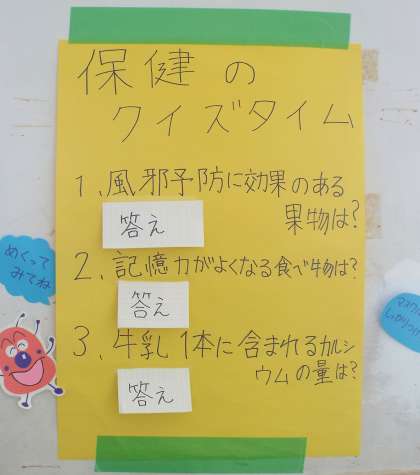 保健の
クイズタイム
1.風邪予防に効果のある
果物は?
答え
2.記憶力がよくなる食べ物は?
答え
3.牛乳1本に含まれるカルシ
ウムの量は?
答え
めくって
みてね
マスク
しっかりつけ